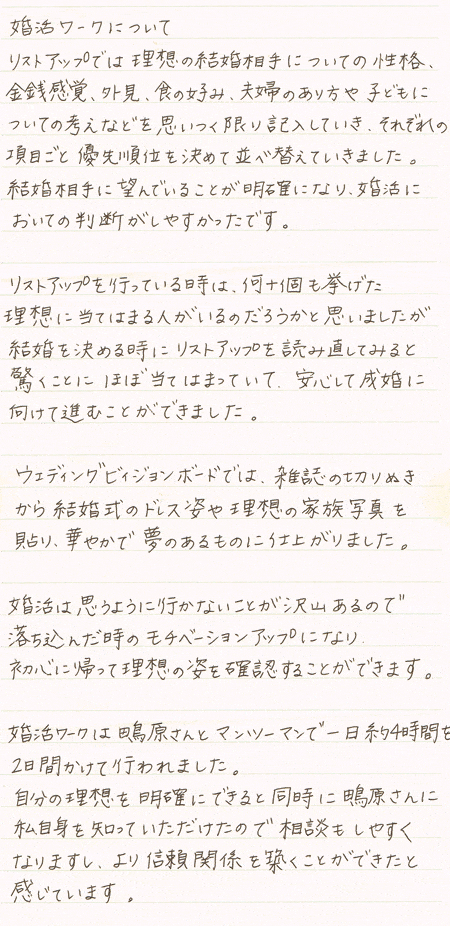 婚活ワークについて
リストアップでは理想の結婚相手についての性格、
金銭感覚、外見、食の好み、夫婦のあり方や子どもに
ついての考えなどを思いつく限り記入していき、それぞれの
項目ごと優先順位を決めて並べ替えていきました。
結婚相手に望んでいることが明確になり、婚活に
おいての判断がしやすかったです。
リストアップを行っている時は、何十個も挙げた
理想に当てはまる人がいるのだろうかと思いましたが
結婚を決める時にリストアップを読み直してみると
驚くことにほぼ当てはまっていて、安心して成婚に
向けて進むことができました。
ウェディングビィジョンボードでは、雑誌の切りぬき
から結婚式のドレス姿や理想の家族写真を
貼り、華やかで夢のあるものに仕上がりました。
婚活は思うように行かないことが沢山あるので
落ち込んだ時のモチベーションアップになり、
初心に帰って理想の姿を確認することができます。
婚活ワークは鴫原さんとマンツーマンで一日約4時間を
2日間かけて行われました。
自分の理想を明確にできると同時に鴫原さんに
私自身を知っていただけたので相談もしやすく
なりますし、より信頼関係を築くことができたと
感じています。